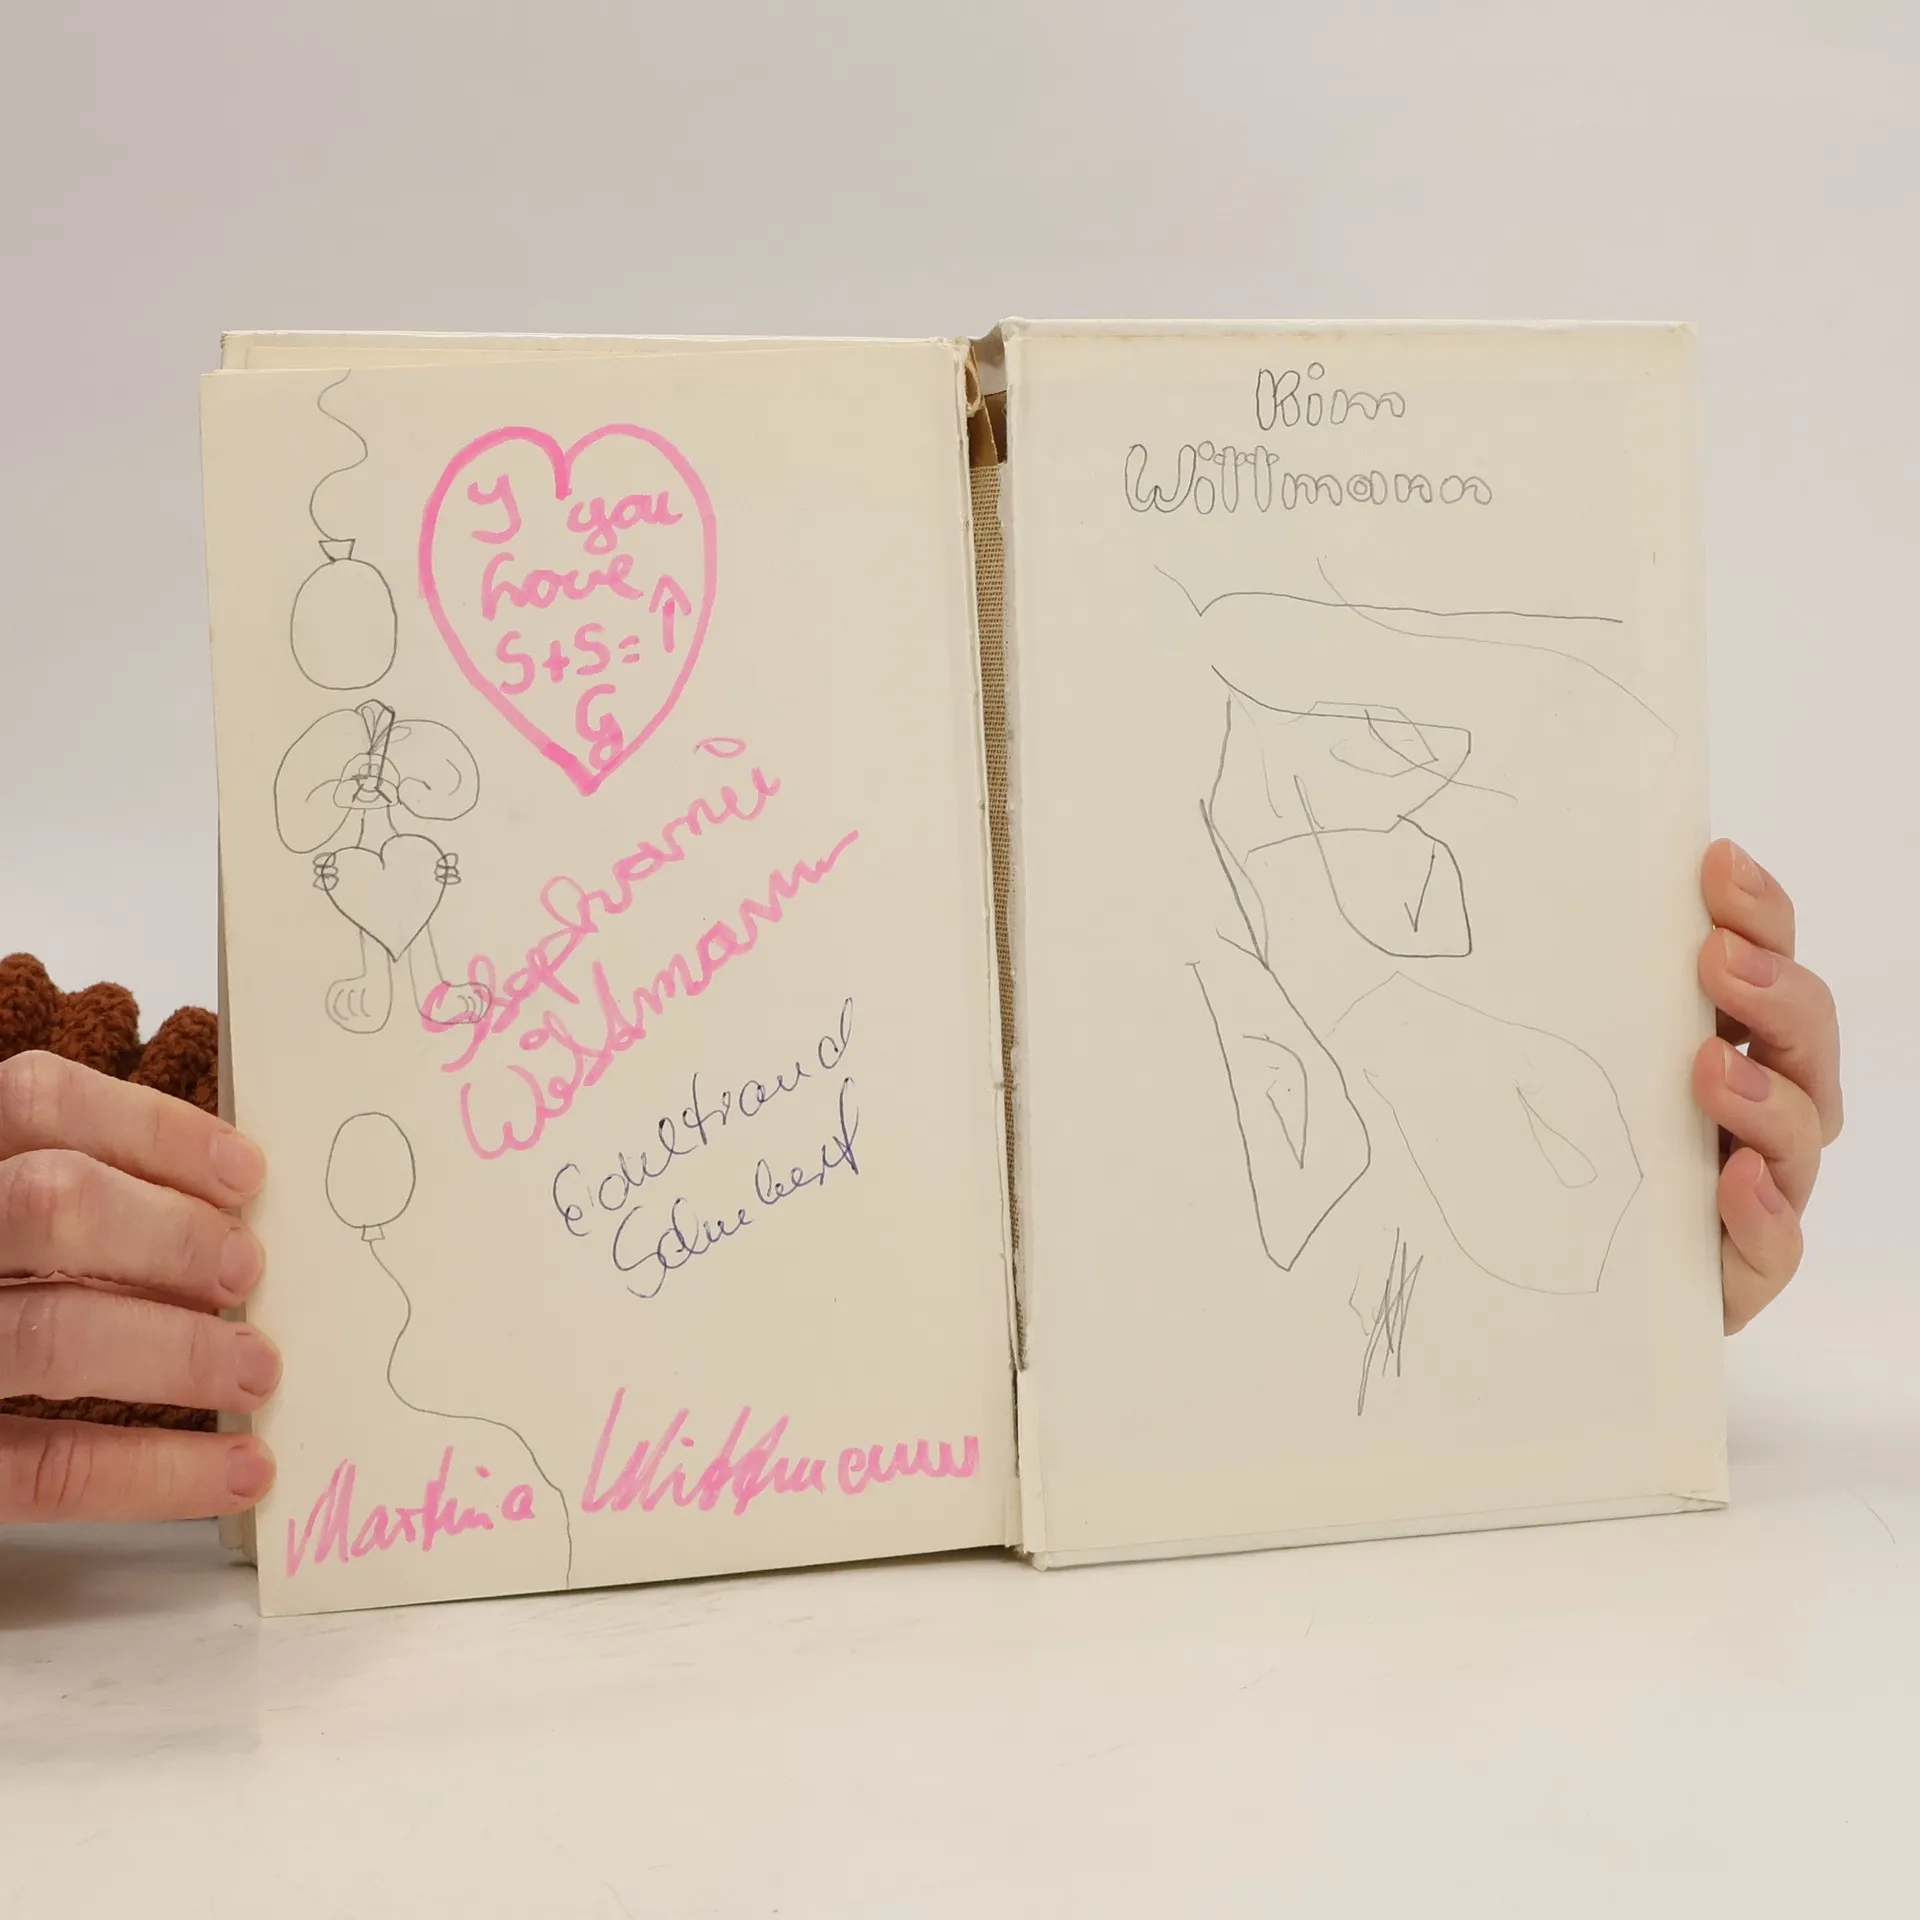 y you
love
S+S=↑
G
Stephanie
Wittmann
Edeltraud
Schubert
Martina Wittmann
Kim
Wittmann